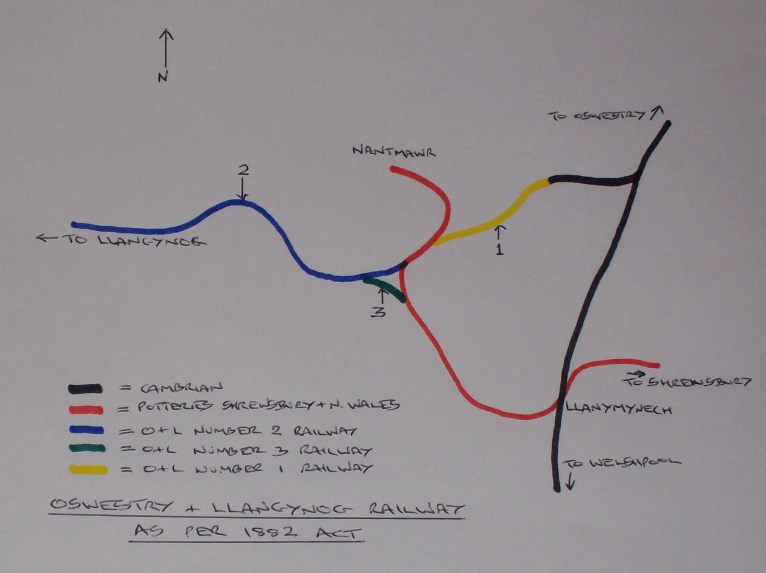 N
TO OSWESTRY
NANTMAWR
2
← TO LLANGYNOG
1
3
TO SHREWSBURY
LLANYMYNECH
TO WELSHPOOL
= CAMBRIAN
= POTTERIES SHREWSBURY + N. WALES
= O+L NUMBER 2 RAILWAY
= O+L NUMBER 3 RAILWAY
= O+L NUMBER 1 RAILWAY
OSWESTRY + LLANGYNOG RAILWAY
AS PER 1882 ACT